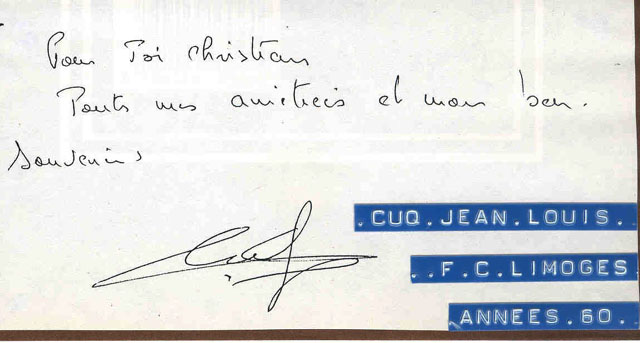 Pour Toi Christian
Toutes mes amitiés et mon bon.
Souvenirs
.CUQ.JEAN.LOUIS..
..F.C.LIMOGES
.ANNEES.60..